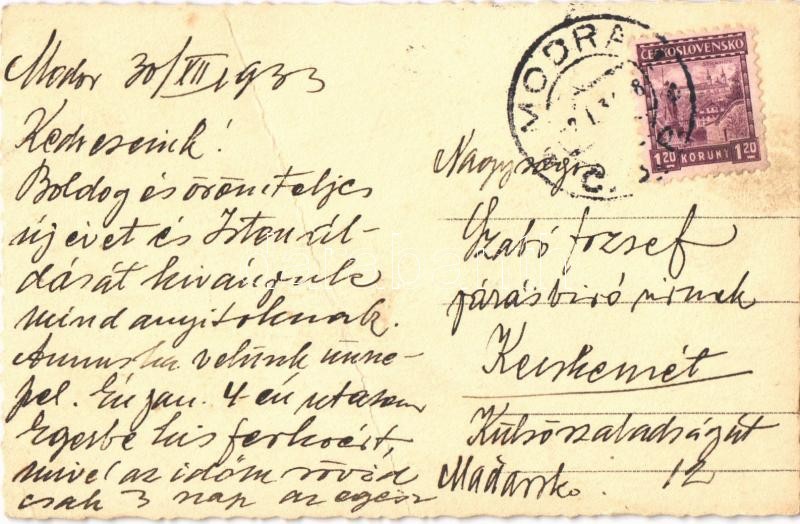 Modor 30/XII 1933
Kedveseink!
Boldog és örömteljes
új évet és Isten ál-
dását kivánjunk
mindanyitoknak.
Annuska velünk ünne-
pel. Én jan. 4-én utazom
Egerbe kis ferkoért,
mivel az időm rövid
csak 3 nap az egész
MODRA
ČESKOSLOVENSKO
1.20 KORUNY 1.20
Nagyságos
Szabó József
járásbiró úrnak
Kecskemét
Külsőszabadságút
12
Maďarsko.